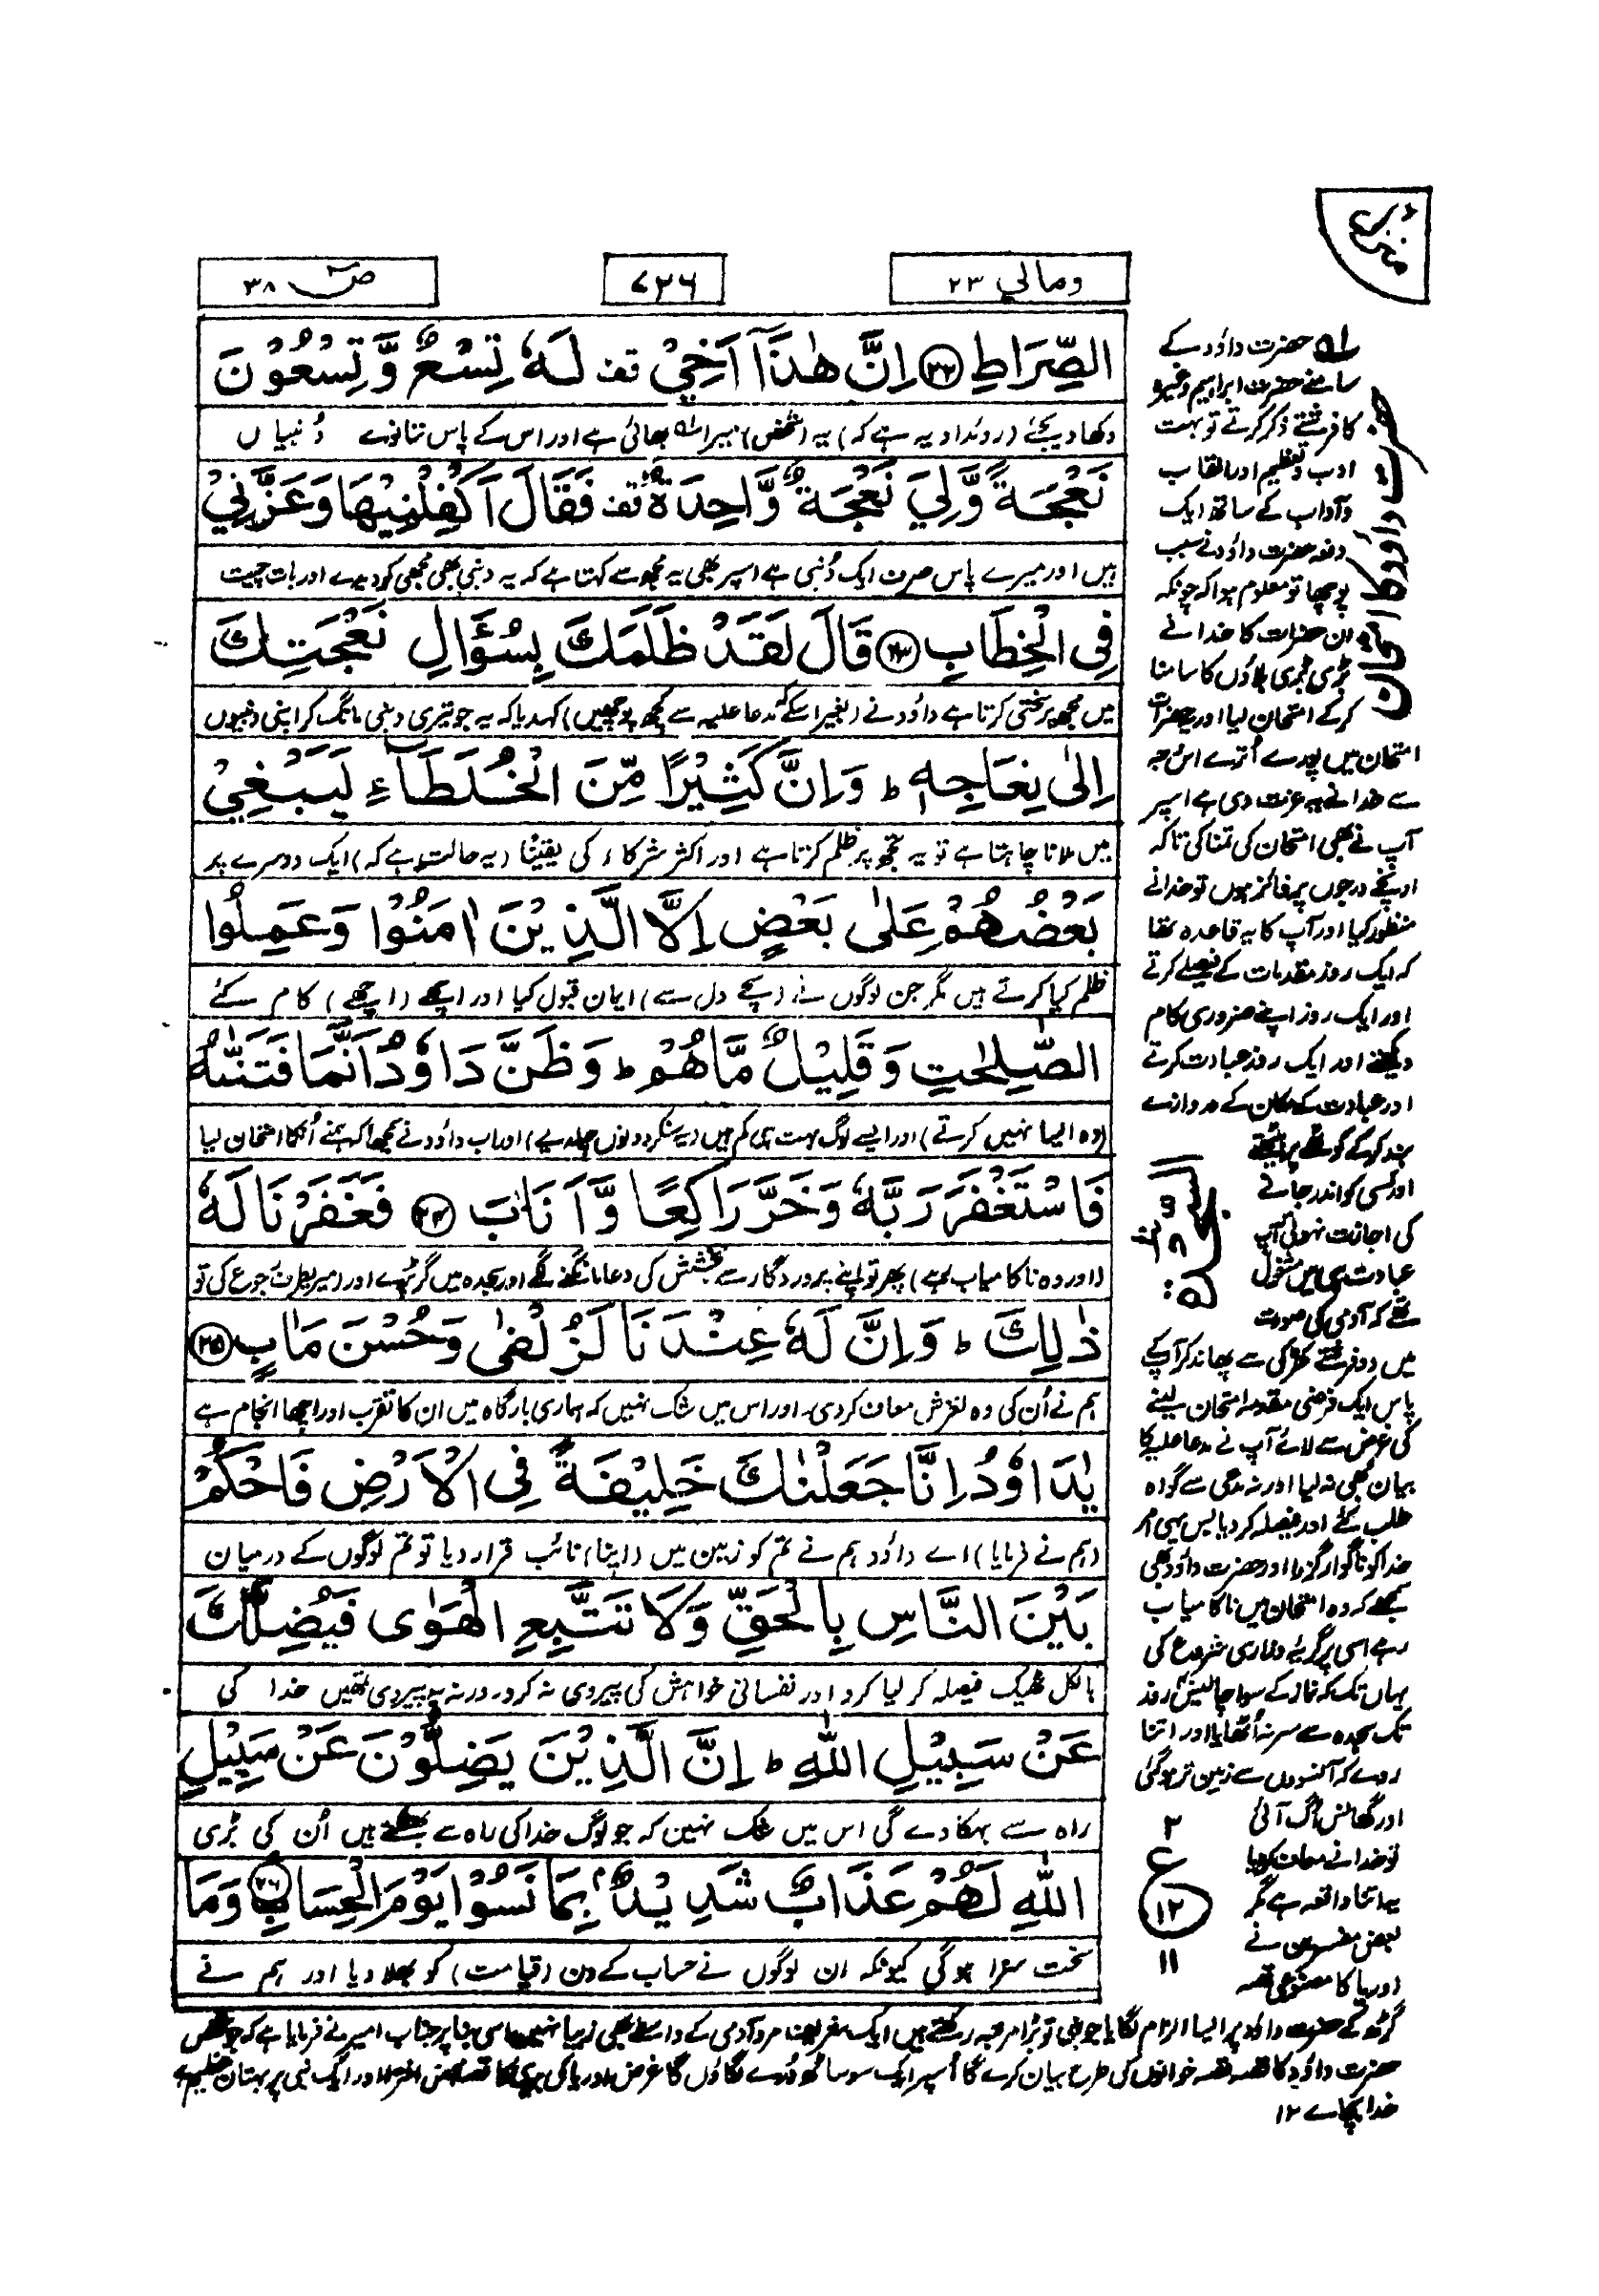 منزل ۶
ومالي ۲۳
۷۲۶
ص ۳۸
الصِّرَاطِ ﴿۲۲﴾ اِنَّ هٰذَاۤ اَخِيْ قف لَهٗ تِسْعٌ وَّ تِسْعُوْنَ
دکھا دیجئے (روئداد یہ ہے کہ) یہ (شخص) میرا بھائی ہے اور اس کے پاس ننانوے دُنبیاں
نَعْجَةً وَّلِيَ نَعْجَةٌ وَّاحِدَةٌ قف فَقَالَ اَكْفِلْنِيْهَا وَعَزَّنِيْ
ہیں اور میرے پاس صرف ایک دُنبی ہے اسپر بھی یہ مجھ سے کہتا ہے کہ یہ دنبی بھی مجھی کو دیدے اور بات چیت
فِى الْخِطَابِ ﴿۲۳﴾ قَالَ لَقَدْ ظَلَمَكَ بِسُؤَالِ نَعْجَتِكَ
میں مجھ پر سختی کرتا ہے داوٗد نے (بغیر اسکے کہ مدعا علیہ سے کچھ پوچھیں) کہدیا کہ یہ جو تیری دنبی مانگ کر اپنی دنبیوں
اِلٰى نِعَاجِهٖ ط وَاِنَّ كَثِيْرًا مِّنَ الْخُلَطَآءِ لَيَبْغِيْ
میں ملانا چاہتا ہے تو یہ تجھ پر ظلم کرتا ہے اور اکثر شرکاء کی یقینًا (یہ حالت ہے کہ) ایک دوسرے پر
بَعْضُهُمْ عَلٰى بَعْضٍ اِلَّا الَّذِيْنَ اٰمَنُوْا وَعَمِلُوا
ظلم کیا کرتے ہیں مگر جن لوگوں نے (سچے دل سے) ایمان قبول کیا اور اچھے (اچھے) کام کئے
الصّٰلِحٰتِ وَقَلِيْلٌ مَّا هُمْ ط وَظَنَّ دَاوٗدُ اَنَّمَا فَتَنّٰهُ
(وہ ایسا نہیں کرتے) اور ایسے لوگ بہت ہی کم ہیں (یہ سنکر دونوں چلدیے) اور اب داوٗد نے سمجھا کہ ہمنے اُنکا امتحان لیا
فَاسْتَغْفَرَ رَبَّهٗ وَخَرَّ رَاكِعًا وَّاَنَابَ ﴿۲۴﴾ فَغَفَرْنَا لَهٗ
(اور وہ ناکامیاب رہے) پھر تو اپنے پروردگار سے بخشش کی دعا مانگنے لگے اور سجدہ میں گر پڑے اور (میری) طرف رجوع کی تو
ذٰلِكَ ط وَاِنَّ لَهٗ عِنْدَنَا لَزُلْفٰى وَحُسْنَ مَاٰبٍ ﴿۲۵﴾
ہم نے اُن کی وہ لغزش معاف کر دی۔ اور اس میں شک نہیں کہ ہماری بارگاہ میں ان کا تقرب اور اچھا انجام ہے
يٰدَاوٗدُ اِنَّا جَعَلْنٰكَ خَلِيْفَةً فِى الْاَرْضِ فَاحْكُمْ
(ہم نے فرمایا) اے داوٗد ہم نے تم کو زمین میں (اپنا) نائب قرار دیا تو تم لوگوں کے درمیان
بَيْنَ النَّاسِ بِالْحَقِّ وَلَا تَتَّبِعِ الْهَوٰى فَيُضِلَّكَ
بالکل ٹھیک فیصلہ کر لیا کرو اور نفسانی خواہش کی پیروی نہ کرو ورنہ یہ پیروی تمھیں خدا کی
عَنْ سَبِيْلِ اللّٰهِ ط اِنَّ الَّذِيْنَ يَضِلُّوْنَ عَنْ سَبِيْلِ
راہ سے بہکا دے گی اس میں شک نہیں کہ جو لوگ خدا کی راہ سے بھٹکتے ہیں اُن کی بڑی
اللّٰهِ لَهُمْ عَذَابٌ شَدِيْدٌۢ بِمَا نَسُوْا يَوْمَ الْحِسَابِ ﴿۲۶﴾ وَمَا
سخت سزا ہوگی کیونکہ ان لوگوں نے حساب کے دن (قیامت) کو بھلا دیا اور ہم نے
لہ حضرت داوٗد کے
سامنے حضرت ابراہیم وغیرہ
کا فرشتے ذکر کرتے تو بہت
ادب و تعظیم اور القاب
و آداب کے ساتھ ایک
دفعہ حضرت داوٗد نے سبب
پوچھا تو معلوم ہوا کہ چونکہ
ان حضرات کا خدا نے
بڑی بڑی بلاؤں کا سامنا
کرکے امتحان لیا اور یہ حضرات
امتحان میں پورے اُترے اس وجہ
سے خدا نے یہ عزت دی ہے اسپر
آپ نے بھی امتحان کی تمنا کی تاکہ
اونچے درجوں پر فائز ہوں تو خدا نے
منظور کیا اور آپ کا یہ قاعدہ تھا
کہ ایک روز مقدمات کے فیصلے کرتے
اور ایک روز اپنے ضروری کام
دیکھتے اور ایک روز عبادت کرتے
اور عبادت کے مکان کے دروازے
بند کرکے کوٹھے پر بیٹھتے
اور کسی کو اندر جانے
کی اجازت نہوتی آپ
عبادت ہی میں مشغول
تھے کہ آدمی کی صورت
میں دو فرشتے کھڑکی سے پھاند کر آپکے
پاس ایک فرضی مقدمہ امتحان لینے
کی غرض سے لائے آپ نے مدعا علیہ کا
بیان بھی نہ لیا اور نہ مدعی سے گواہ
طلب کئے اور فیصلہ کر دیا بس یہی امر
خدا کو ناگوار گزرا اور حضرت داوٗد بھی
سمجھے کہ وہ امتحان میں ناکامیاب
رہے اسی پر گریہ و زاری شروع کی
یہاں تک کہ نماز کے سوا چالیس روز
تک سجدہ سے سر نہ اُٹھایا اور اتنا
روئے کہ آنسوؤں سے زمین تر ہوگئی
اور گھانس اُگ آئی
تو خدا نے معاف کر دیا
یہ اتنا واقعہ ہے مگر
بعض مفسرین نے
اوریا کا مصنوعی قصہ
۲
ع
۱۲
۱۱
گڑھ کے حضرت داوٗد پر ایسا الزام لگایا جو نبی تو بڑا مرتبہ رکھتے ہیں ایک مرد آدمی کے واسطے بھی زیبا نہیں اسی بنا پر جناب امیر نے فرمایا ہے کہ جو شخص
حضرت داوٗد کا قصہ قصہ خوانوں کی طرح بیان کرے گا اُسپر ایک سو ساٹھ دُرے لگاؤں گا غرض اوریا کی بیوی کا قصہ محض افترا اور ایک نبی پر بہتان عظیم ہے
خدا بچائے ۱۲